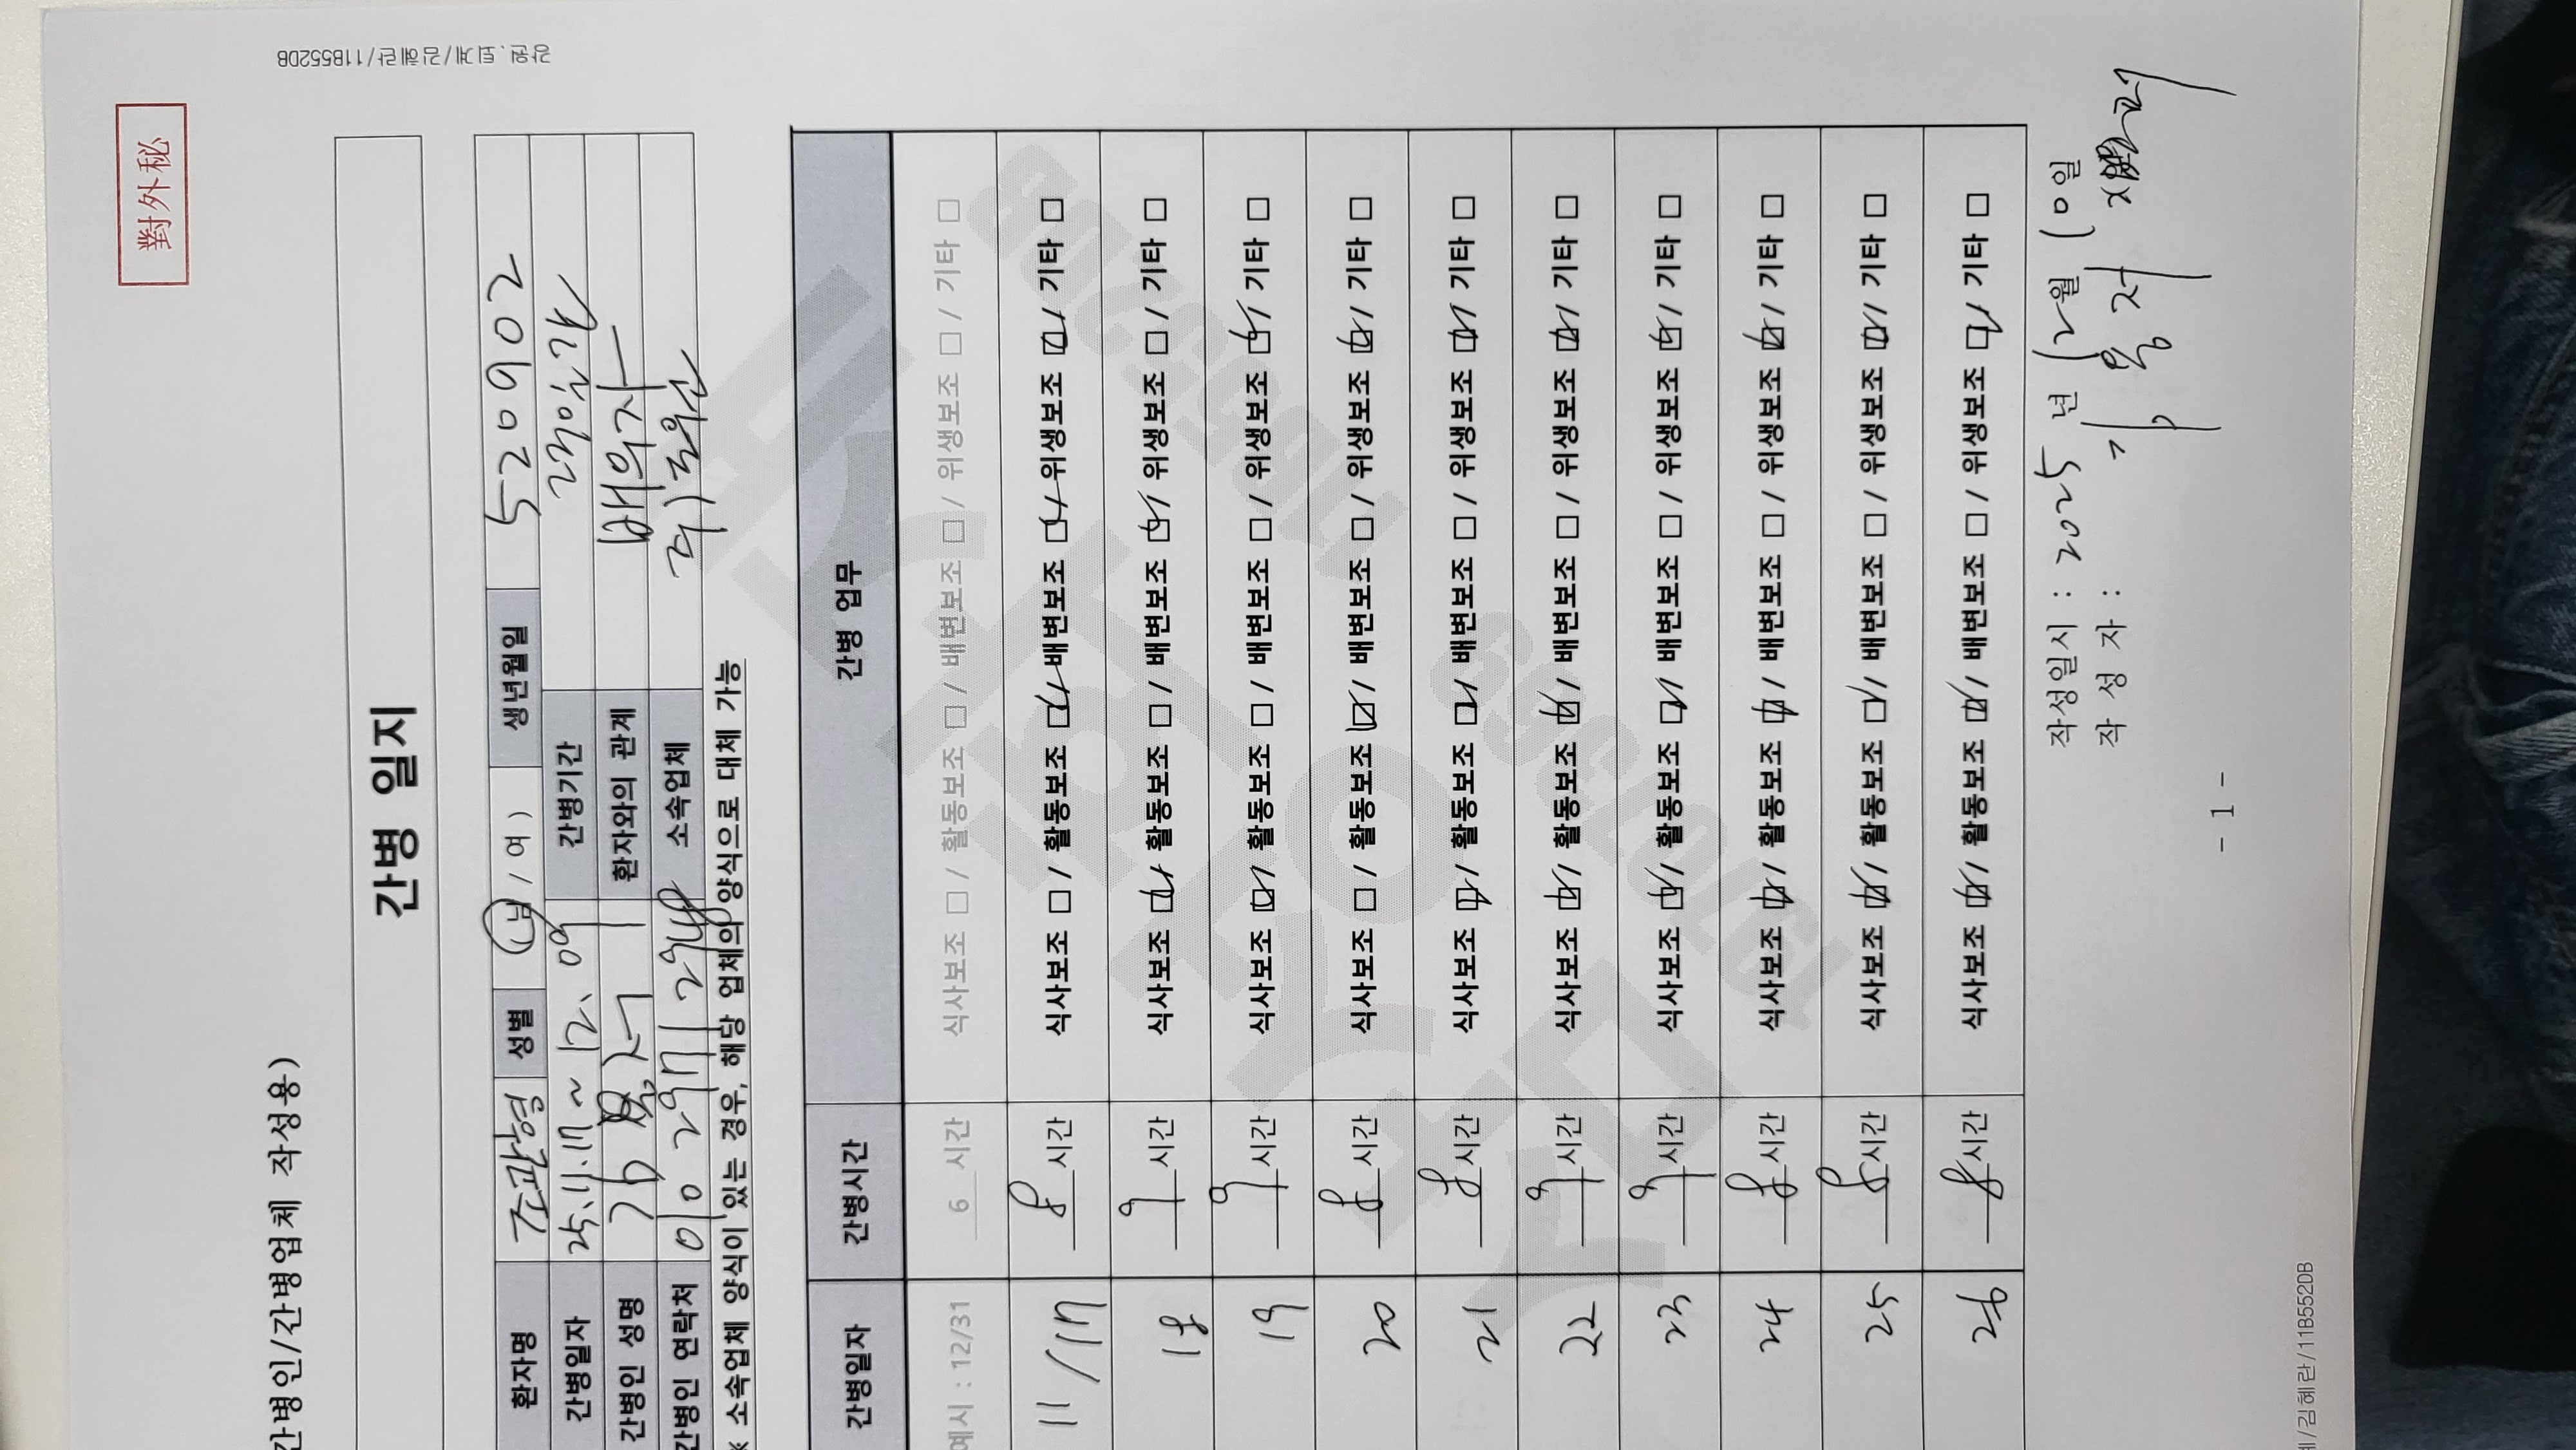 강원.퇴계/김혜란/11B552DB
對外秘
간병인/간병업체 작성용)
간병 일지
환자명 조판영 성별 (남 / 여) 생년월일 520902
간병일자 25.11.17 ~ 12.09 간병기간
간병인 성명 김용저 환자와의 관계 배우자
간병인 연락처 소속업체
소속업체 양식이 있는 경우, 해당 업체의 양식으로 대체 가능
간병일자 간병시간 간병 업무
예시 : 12/31 6 시간 식사보조 □ / 활동보조 □ / 배변보조 □ / 위생보조 □ / 기타 □
11/17 8 시간 식사보조 □ / 활동보조 ☑ / 배변보조 ☑ / 위생보조 ☑ / 기타 □
18 9 시간 식사보조 ☑ / 활동보조 □ / 배변보조 ☑ / 위생보조 □ / 기타 □
19 9 시간 식사보조 ☑ / 활동보조 □ / 배변보조 □ / 위생보조 ☑ / 기타 □
20 8 시간 식사보조 □ / 활동보조 ☑ / 배변보조 □ / 위생보조 ☑ / 기타 □
21 8 시간 식사보조 ☑ / 활동보조 ☑ / 배변보조 □ / 위생보조 ☑ / 기타 □
22 9 시간 식사보조 ☑ / 활동보조 ☑ / 배변보조 □ / 위생보조 ☑ / 기타 □
23 9 시간 식사보조 ☑ / 활동보조 ☑ / 배변보조 □ / 위생보조 ☑ / 기타 □
24 8 시간 식사보조 ☑ / 활동보조 ☑ / 배변보조 □ / 위생보조 ☑ / 기타 □
25 8 시간 식사보조 ☑ / 활동보조 ☑ / 배변보조 □ / 위생보조 ☑ / 기타 □
26 8 시간 식사보조 ☑ / 활동보조 ☑ / 배변보조 □ / 위생보조 ☑ / 기타 □
작성일시 : 2025 년 12월 10일
작 성 자 : 김용저
- 1 -
/김혜란/11B552DB